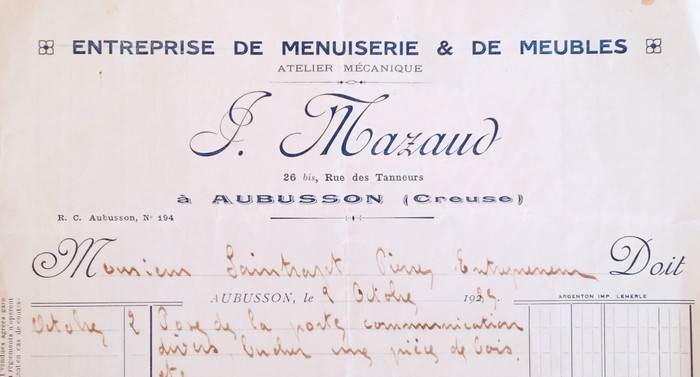 ENTREPRISE DE MENUISERIE & DE MEUBLES
ATELIER MÉCANIQUE
J. Mazaud
26 bis, Rue des Tanneurs
à AUBUSSON (Creuse)
R. C. Aubusson, N° 194
Monsieur Saintrapt Pierre, Entrepreneur Doit
AUBUSSON, le 9 Octobre 192
ARGENTON IMP. LEMERLE
Octobre 2 Pose de la porte communication
divers, une pièce de bois,
etc